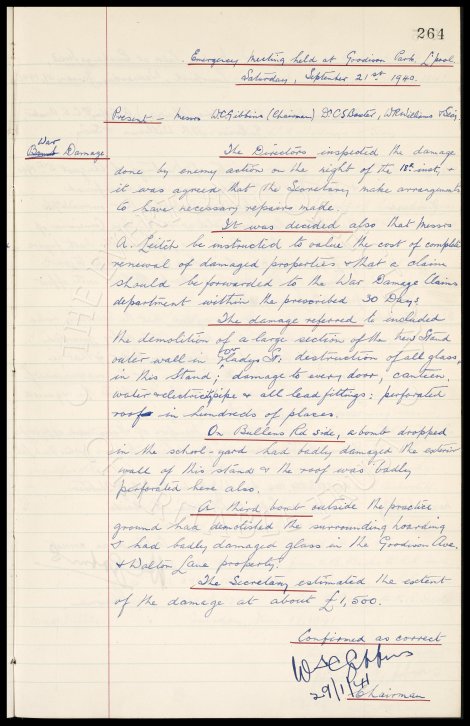 264
Emergency Meeting held at Goodison Park, L'pool.
Saturday, September 21st 1940.
Present - Messrs W.C. Gibbins (Chairman) Dr C.S. Baxter, W.R. Williams & Secy.
War
Bomb Damage
The Directors inspected the damage
done by enemy action on the night of the 18th inst, &
it was agreed that the Secretary make arrangements
to have necessary repairs made.
It was decided also that Messrs
A. Leitch be instructed to value the cost of complete
renewal of damaged properties & that a claim
should be forwarded to the War Damage Claims
department within the prescribed 30 Days.
The damage referred to included
the demolition of a large section of the new Stand
outer wall in Gladys St; destruction of all glass,
in this Stand; damage to every door, canteen
water & electricity pipe & all lead fittings: perforated
roof in hundreds of places.
On Bullens Rd side, a bomb dropped
in the school-yard had badly damaged the exterior
wall of this stand & the roof was badly
perforated here also.
A third bomb outside the practice
ground had demolished the surrounding hoarding
& had badly damaged glass in the Goodison Ave.
& Walton Lane property.
The Secretary estimated the extent
of the damage at about £1,500.
Confirmed as correct
W.C. Gibbins
29/1/41
Chairman